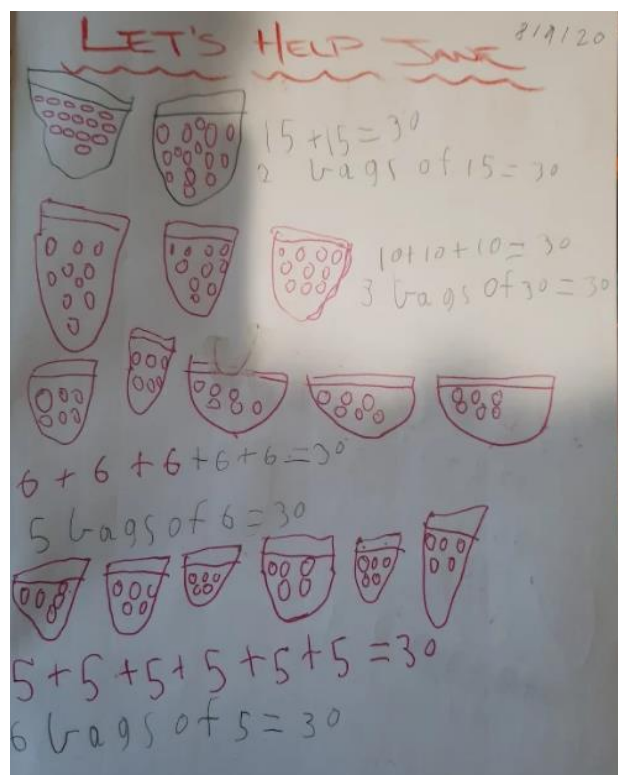 LET'S HELP JANE
8/9/20
15 + 15 = 30
2 bags of 15 = 30
10 + 10 + 10 = 30
3 bags of 30 = 30
6 + 6 + 6 + 6 + 6 = 30
5 bags of 6 = 30
5 + 5 + 5 + 5 + 5 + 5 = 30
6 bags of 5 = 30